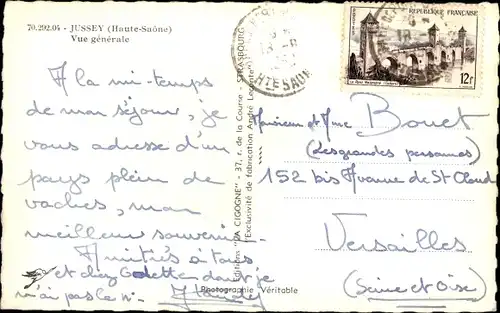 70.292.04 - JUSSEY (Haute-Saône)
Vue générale
A la mi-temps
de mon séjour, je
vous adresse d'un
pays plein de
vaches, mon
meilleur souvenir.
Amitiés à tous
et chez Odette dont je
n'ai pas le n°
Editions "LA CIGOGNE" - 37, r. de la Course - STRASBOURG
(Exclusivité de fabrication André Leconte)
Photographie Véritable
RÉPUBLIQUE FRANÇAISE
12F
Monsieur et Mme Bouet
(les grandes personnes)
152 bis Avenue de St Cloud
Versailles
(Seine et Oise)